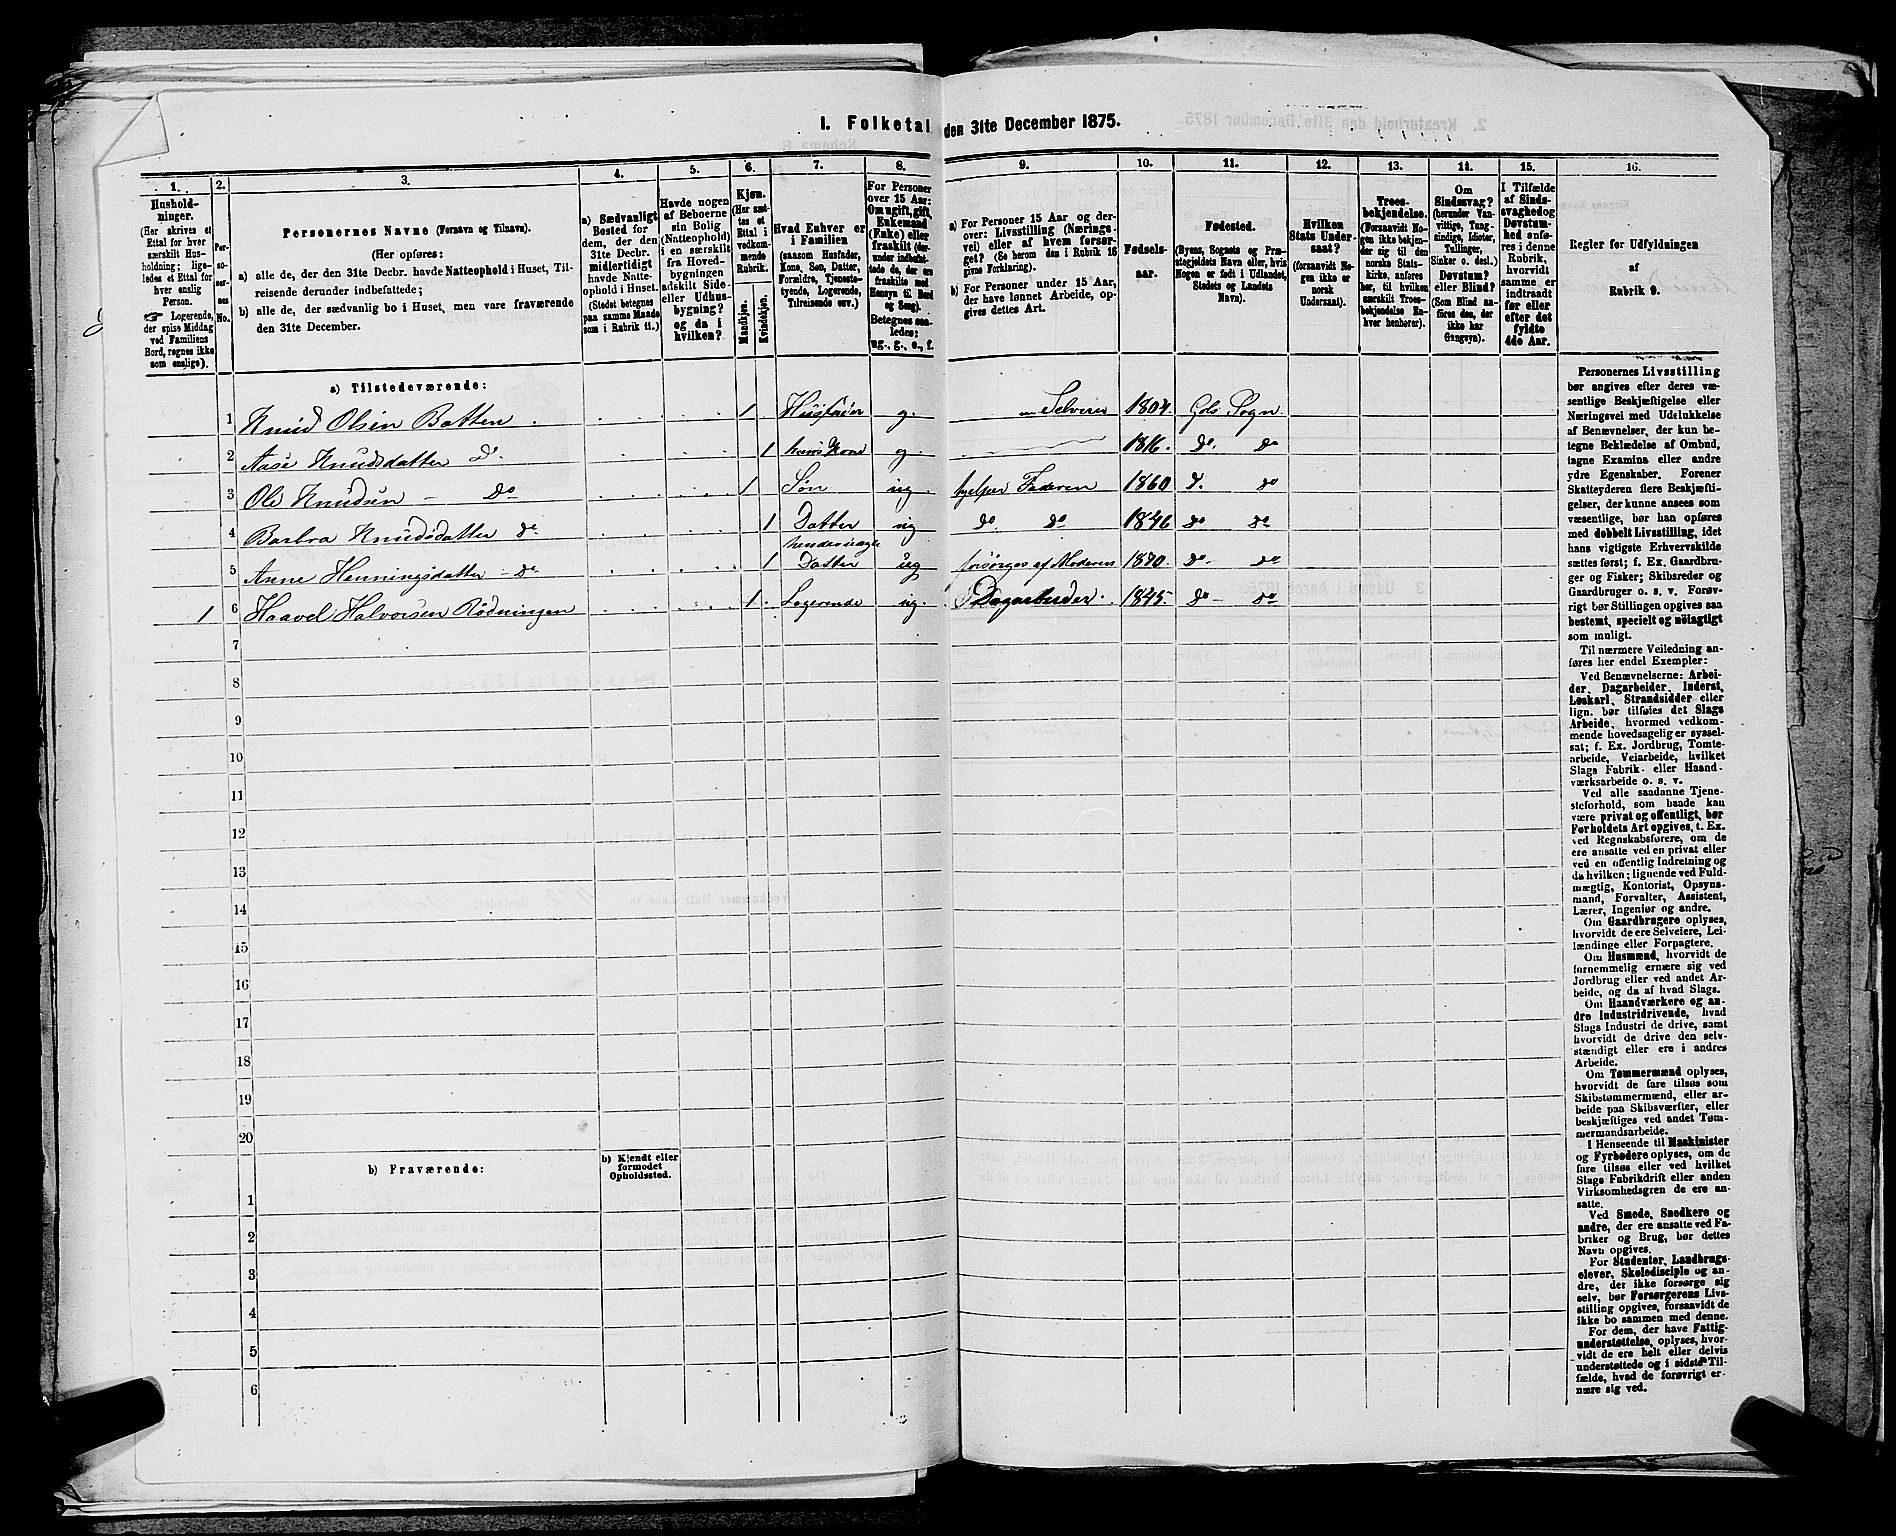 I. Folketal den 31te December 1875.
1. 2. 3. 4. 5. 6. 7. 8. 9. 10. 11. 12. 13. 14. 15. 16.
Hushold-
ninger.
(Her skrives et
Ettal for hver
særskilt Hus-
holdning; lige-
ledes et Ettal for
hver enslig
Person.
☞ Logerende,
der spise Middag
ved Familiens
Bord, regnes ikke
som enslige).
Per-
so-
ner-
nes
No.
Personernes Navne (Fornavn og Tilnavn).
(Her opføres:
a) alle de, der den 31te Decbr. havde Natteophold i Huset, Til-
reisende derunder indbefattede;
b) alle de, der sædvanlig bo i Huset, men vare fraværende
den 31te December.
a) Sædvanligt
Bosted for
dem, der den
31te Decbr.
midlertidigt
havde Natte-
ophold i Huset.
(Stedet betegnes
paa samme Maade
som i Rubrik 11.)
Havde nogen
af Beboerne
sin Bolig
(Natteophold)
i en særskilt
fra Hoved-
bygningen
adskilt Side-
eller Udhus-
bygning?
og da i
hvilken?
Kjøn.
(Her sæt-
tes et
Ettal i
vedkom-
mende
Rubrik.
Mandkjøn.
Kvindekjøn.
Hvad Enhver er
i Familien
(saasom Husfader,
Kone, Søn, Datter,
Forældre, Tjeneste-
tyende, Logerende,
Tilreisende osv.)
For Personer
over 15 Aar:
Om ugift, gift,
Enkemand
(Enke) eller
fraskilt (der-
under indbefat-
tede de, der ere
fraskilte med
Hensyn til Bord
og Seng).
Betegnes saa-
ledes:
ug., g., e., f.
a) For Personer 15 Aar og der-
over: Livsstilling (Nærings-
vei) eller af hvem forsør-
get? (Se herom den i Rubrik 16
givne Forklaring).
b) For Personer under 15 Aar,
der have lønnet Arbeide, op-
gives dettes Art.
Fødsels-
aar.
Fødested.
(Byens, Sognets og Præ-
stegjeldets Navn eller, hvis
Nogen er født i Udlandet,
Stedets og Landets
Navn).
Hvilken
Stats Under-
saat?
(forsaavidt No-
gen ikke er
norsk
Undersaat).
Troes-
bekjendelse.
(Forsaavidt No-
gen ikke bekjen-
der sig til den
norske Stats-
kirke, anføres
her, til hvilken
særskilt Troes-
bekjendelse En-
hver henhører).
Om
Sindssvag?
(herunder Van-
vittige, Tung-
sindige, Idioter,
Tullinger,
Sinker o. desl.)
Døvstum?
eller Blind?
(Som Blind an-
føres den, der
ikke har
Gangsyn).
I Tilfælde
af Sinds-
svaghed og
Døvstum-
hed anfø-
res i denne
Rubrik,
hvorvidt
samme er
indtraadt
før eller
efter det
fyldte
4de Aar.
Regler for Udfyldningen
af
Rubrik 9.
a) Tilstedeværende:
1 Knud Olsen Batten 1 Husfader g. Selveier 1804. Gols Sogn
2 Aase Knudsdatter do 1 hans Kone g. 1816. do do
3 Ole Knudsen do 1 Søn ug. hjelper Faderen 1860 d. do
4 Barbra Knudsdatter do 1 Datter ug do do 1846 do do
5 Anne Henningsdatter do 1 hendes uægte Datter ug forsørges af Moderen 1870. do do
1 6 Haavel Halvorsen Rødningen 1 Logerende ug. Dagarbeider 1845. do do
7
8
9
10
11
12
13
14
15
16
17
18
19
20
b) Fraværende:
b) Kjendt eller
formodet
Opholdssted.
1
2
3
4
5
6
Personernes Livsstilling
bør angives efter deres væ-
sentlige Beskjæftigelse eller
Næringsvei med Udelukkelse
af Benævnelser, der kun be-
tegne Beklædelse af Ombud,
tagne Examina eller andre
ydre Egenskaber. Forener
Skatteyderen flere Beskjæfti-
gelser, der kunne ansees som
væsentlige, bør han opføres
med dobbelt Livsstilling, idet
hans vigtigste Erhvervskilde
sættes først; f. Ex. Gaardbru-
ger og Fisker; Skibsreder og
Gaardbruger o. s. v. Forøv-
rigt bør Stillingen opgives saa
bestemt, specielt og nöiagtigt
som muligt.
Til nærmere Veiledning an-
føres her endel Exempler:
Ved Benævnelserne: Arbei-
der, Dagarbeider, Inderst,
Løskarl, Strandsidder eller
lign. bør tilføies det Slags
Arbeide, hvormed vedkom-
mende hovedsagelig er syssel-
sat; f. Ex. Jordbrug, Tomte-
arbeide, Veiarbeide, hvilket
Slags Fabrik- eller Haand-
værksarbeide o. s. v.
Ved alle saadanne Tjene-
steforhold, som baade kan
være privat og offentligt, bør
Forholdets Art opgives, t. Ex.
ved Regnskabsførere, om de
ere ansatte ved en privat eller
ved en offentlig Indretning og
da hvilken; lignende ved Fuld-
mægtig, Kontorist, Opsyns-
mand, Forvalter, Assistent,
Lærer, Ingeniør og andre.
Om Gaardbrugere oplyses,
hvorvidt de ere Selveiere, Lei-
lændinge eller Forpagtere.
Om Husmænd, hvorvidt de
fornemmelig ernære sig ved
Jordbrug eller ved andet Ar-
beide, og da af hvad Slags.
Om Haandværkere og an-
dre Industridrivende, hvad
Slags Industri de drive, samt
hvorvidt de drive den selv-
stændigt eller ere i andres
Arbeide.
Om Tømmermænd oplyses,
hvorvidt de fare tilsøs som
Skibstømmermænd, eller ar-
beide paa Skibsværfter, eller
beskjæftiges ved andet Tøm-
mermandsarbeide.
I Henseende til Maskinister
og Fyrbødere oplyses, om de
fare tilsøs eller ved hvilket
Slags Fabrikdrift eller anden
Virksomhedsgren de ere an-
satte.
Ved Smede, Snedkere og
andre, der ere ansatte ved Fa-
briker og Brug, bør dettes
Navn opgives.
For Studenter, Landbrugs-
elever, Skoledisciple og an-
dre, der ikke forsørge sig
selv, bør Forsørgerens Livs-
stilling opgives, forsaavidt de
ikke bo sammen med denne.
For dem, der have Fattig-
understøttelse, oplyses, hvor-
vidt de ere helt eller delvis
understøttede og i sidste Til-
fælde, hvad de forøvrigt er-
nære sig ved.